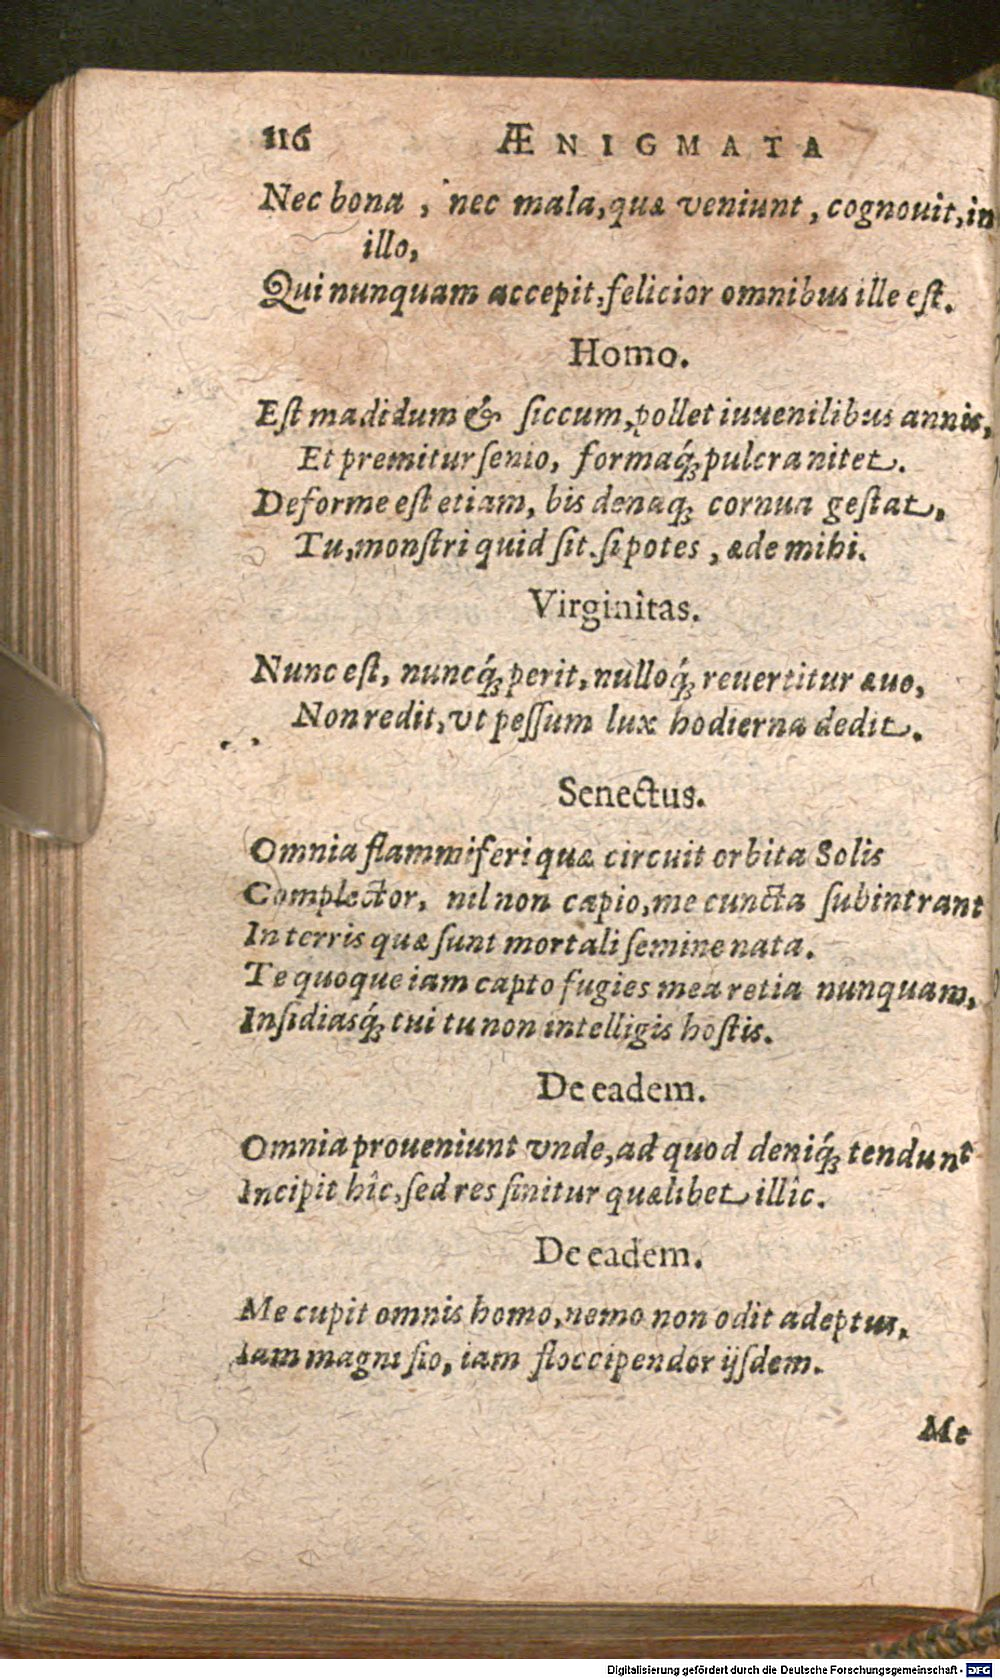 116 ÆNIGMATA
Nec bona, nec mala, quæ veniunt, cognouit, in
illo,
Qui nunquam accepit, felicior omnibus ille est.
Homo.
Est madidum & siccum, pollet iuuenilibus annis,
Et premitur senio, formaq́; pulcra nitet.
Deforme est etiam, bis denaq; cornua gestat,
Tu, monstri quid sit. si potes, æde mihi.
Virginitas.
Nunc est, nuncq́; perit, nulloq́; reuertitur æuo,
Non redit, vt pessum lux hodierna dedit.
Senectus.
Omnia flammiferi quæ circuit orbita Solis
Complector, nil non capio, me cuncta subintrant
In terris quæ sunt mortali semine nata.
Te quoque iam capto fugies mea retia nunquam,
Insidiasq́; tui tu non intelligis hostis.
De eadem.
Omnia proueniunt vnde, ad quod deniq́; tendunt
Incipit hîc, sed res finitur quælibet illîc.
De eadem.
Me cupit omnis homo, nemo non odit adeptus,
Iam magni fio, iam floccipendor ijsdem.
Me
Digitalisierung gefördert durch die Deutsche Forschungsgemeinschaft - DFG